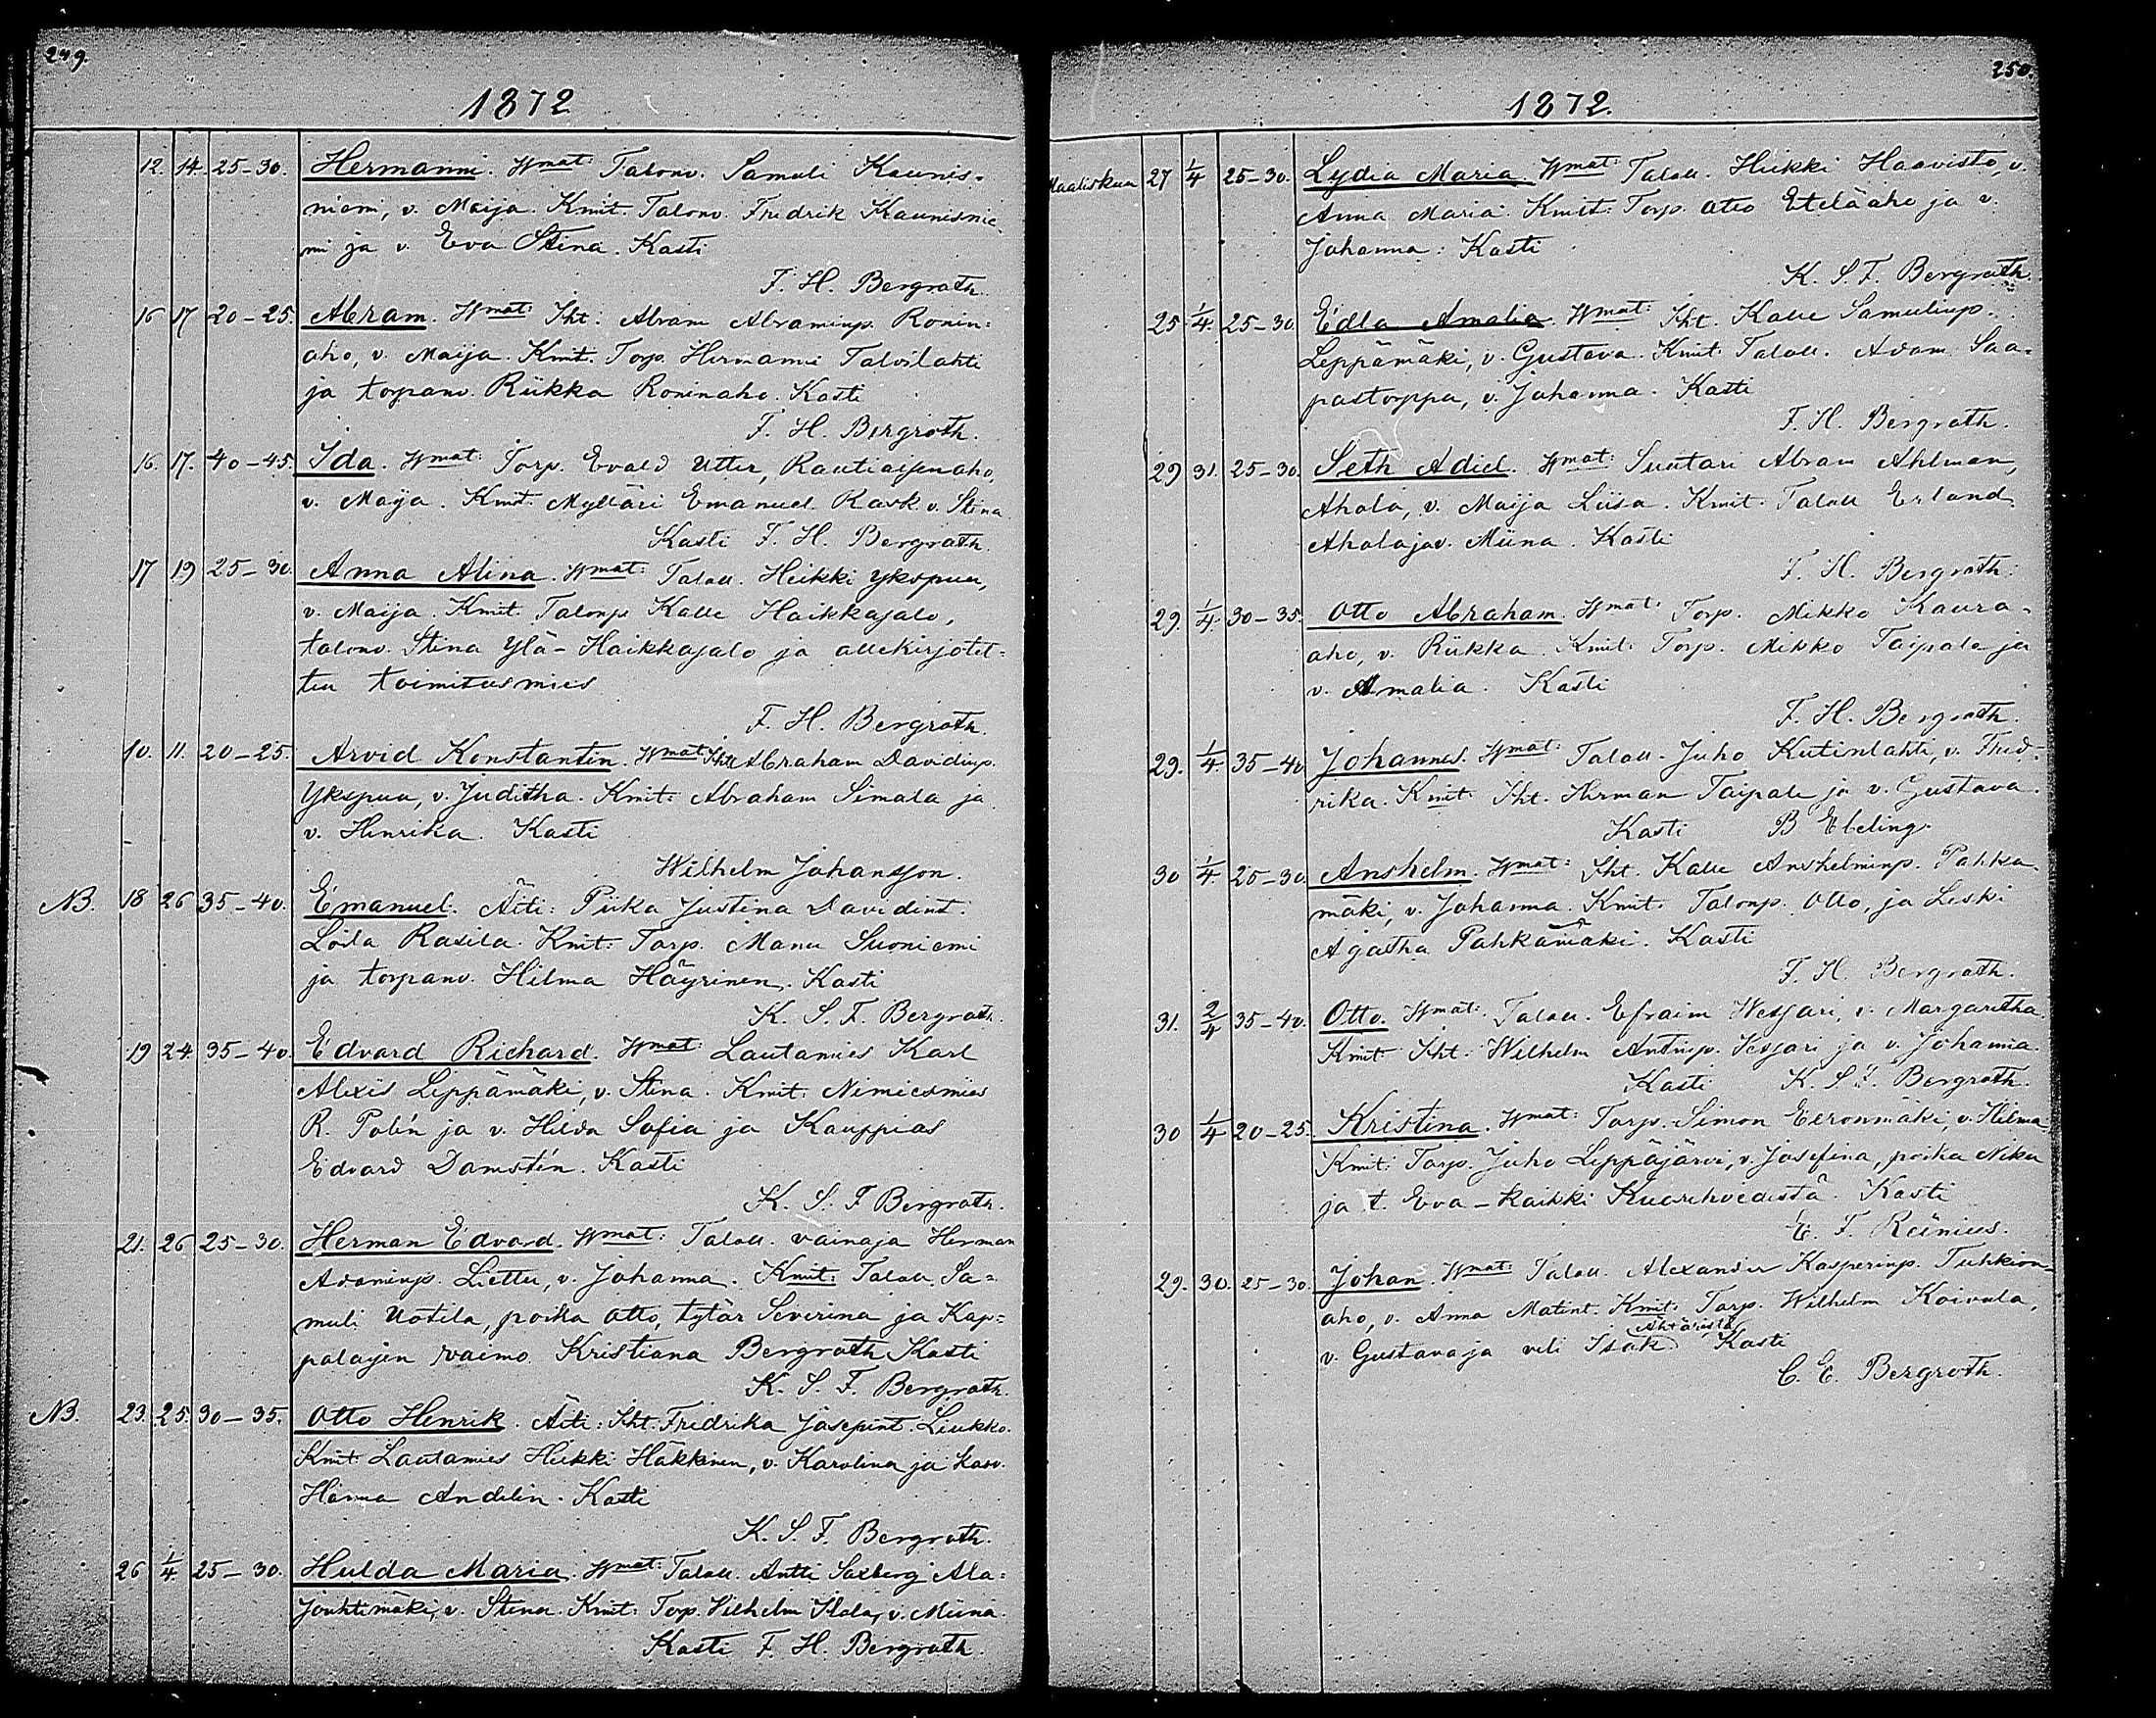 249.
1872
12. 14. 25-30. Hermanni. Wmat: Talonv. Samuli Kaunis-
niemi, v. Maija. Kmit. Talonv. Fredrik Kaunisnie-
mi ja v. Eva Stina. Kasti
F. H. Bergroth.
16 17 20-25. Abram. Wmat: Iht: Abram Abraminp. Ronin-
aho, v. Maija. Kmit. Torp. Hermanni Talvilahti
ja torpanv. Riikka Roninaho. Kasti
F. H. Bergroth.
16. 17. 40-45. Ida. Wmat: Torp. Evald Utter, Rautiaisenaho,
v. Maija. Kmit: Mylläri Emanuel Rask v. Stina
Kasti F. H. Bergroth.
17 19 25-30. Anna Alina. Wmat: Talall. Heikki Ykspuu,
v. Maija. Kmit: Talonp. Kalle Haikkajalo,
talonv. Stina Ylä-Haikkajalo ja allekirjotet-
tu toimitusmies
F. H. Bergroth.
10. 11. 20-25. Arvid Konstantin. Wmat: Itll Abraham Davidinp.
Ykspuu, v. Juditha. Kmit: Abraham Simala ja
v. Henrika. Kasti
Wilhelm Johansson.
NB. 18 26 35-40. Emanuel. Äiti: Piika Justina Davidint.
Loila Rasila. Kmit: Torp. Manu Suoniemi
ja torpanv. Hilma Häyrinen. Kasti
K. S. F. Bergroth.
19 24. 35-40. Edvard Richard. Wmat: Lautamies Karl
Alexis Leppämäki, v. Stina. Kmit: Nimismies
R. Polén ja v. Hilda Sofia ja Kauppias
Edvard Damstén. Kasti
K. S. F Bergroth.
21. 26 25-30. Herman Edvard. Wmat: Talall. vainaja Herman
Adaminp. Liettu, v. Johanna. Kmit: Talall. Sa-
muli Uotila, poika Otto, tytär Severina ja Kap-
palajen vaimo Kristiana Bergroth Kasti
K. S. F. Bergroth.
NB. 23. 25. 30-35. Otto Henrik. Äiti: Iht. Fredrika Josepint. Liukko.
Kmit Lautamies Heikki Häkkinen, v. Karolina ja kasv.
Hanna Andelin. Kasti
K. S. F. Bergroth.
26 1/4. 25-30. Hulda Maria. Wmat: Talall. Antti Saxberg Ala-
Jouhtimäki, v. Stina. Kmit: Torp. Vilhelm Ilola, v. Miina.
Kasti F. H. Bergroth.
250.
1872.
Maaliskuu 27 1/4 25-30. Lydia Maria. Wmat: Talall. Heikki Haavisto, v.
Anna Maria. Kmit: Torp. Otto Eteläaho ja v.
Johanna: Kasti
K. S. F. Bergroth.
25 1/4. 25-30 Edla Amalia. Wmat: Iht. Kalle Samulinp.
Leppämäki, v. Gustava. Kmit: Talall. Adam Saa-
pastorppa, v. Johanna. Kasti
F. H. Bergroth.
29 31. 25-30. Seth Adiel. Wmat: Suutari Abram Ahlman,
Ahola, v. Maija Liisa. Kmit: Talall Erland
Ahola ja v. Miina. Kasti
F. H. Bergroth.
29. 1/4. 30-35. Otto Abraham. Wmat: Torp. Mikko Kaura-
aho, v. Riikka. Kmit: Torp. Mikko Taipale ja
v. Amalia. Kasti
F. H. Bergroth.
29. 1/4. 35-40 Johannes. Wmat: Talall. Juho Kutinlahti, v. Fred-
rika. Kmit: Iht. Herman Taipale ja v. Gustava.
Kasti B Ebeling.
30 1/4. 25-30 Anshelm. Wmat: Iht. Kalle Anshelminp. Pahka-
mäki, v. Johanna. Kmit: Talonp. Otto, ja Leski
Agatha Pahkamäki. Kasti
F. H. Bergroth.
31. 2/4 35-40. Otto. Wmat: Talall. Efraim Wesjari, v. Margaretha
Kmit: Iht. Wilhelm Antinp. Vesjari ja v. Johanna.
Kasti K. S. F. Bergroth.
30 1/4 20-25. Kristina. Wmat: Torp. Simon Eeronmäki, v. Hilma
Kmit: Torp. Juho Leppäjärvi, v. Josefina, poika Niku
ja t. Eva - kaikki Kuorehvedestä. Kasti
E. F. Reinius.
29. 30. 25-30. Johan. Wmat: Talall. Alexander Kasperinp. Tuhkion-
aho, v. Anna Matint. Kmit: Torp. Wilhelm Koivula,
v. Gustava ja veli Isak Ähtäristä Kasti
C. E. Bergroth.